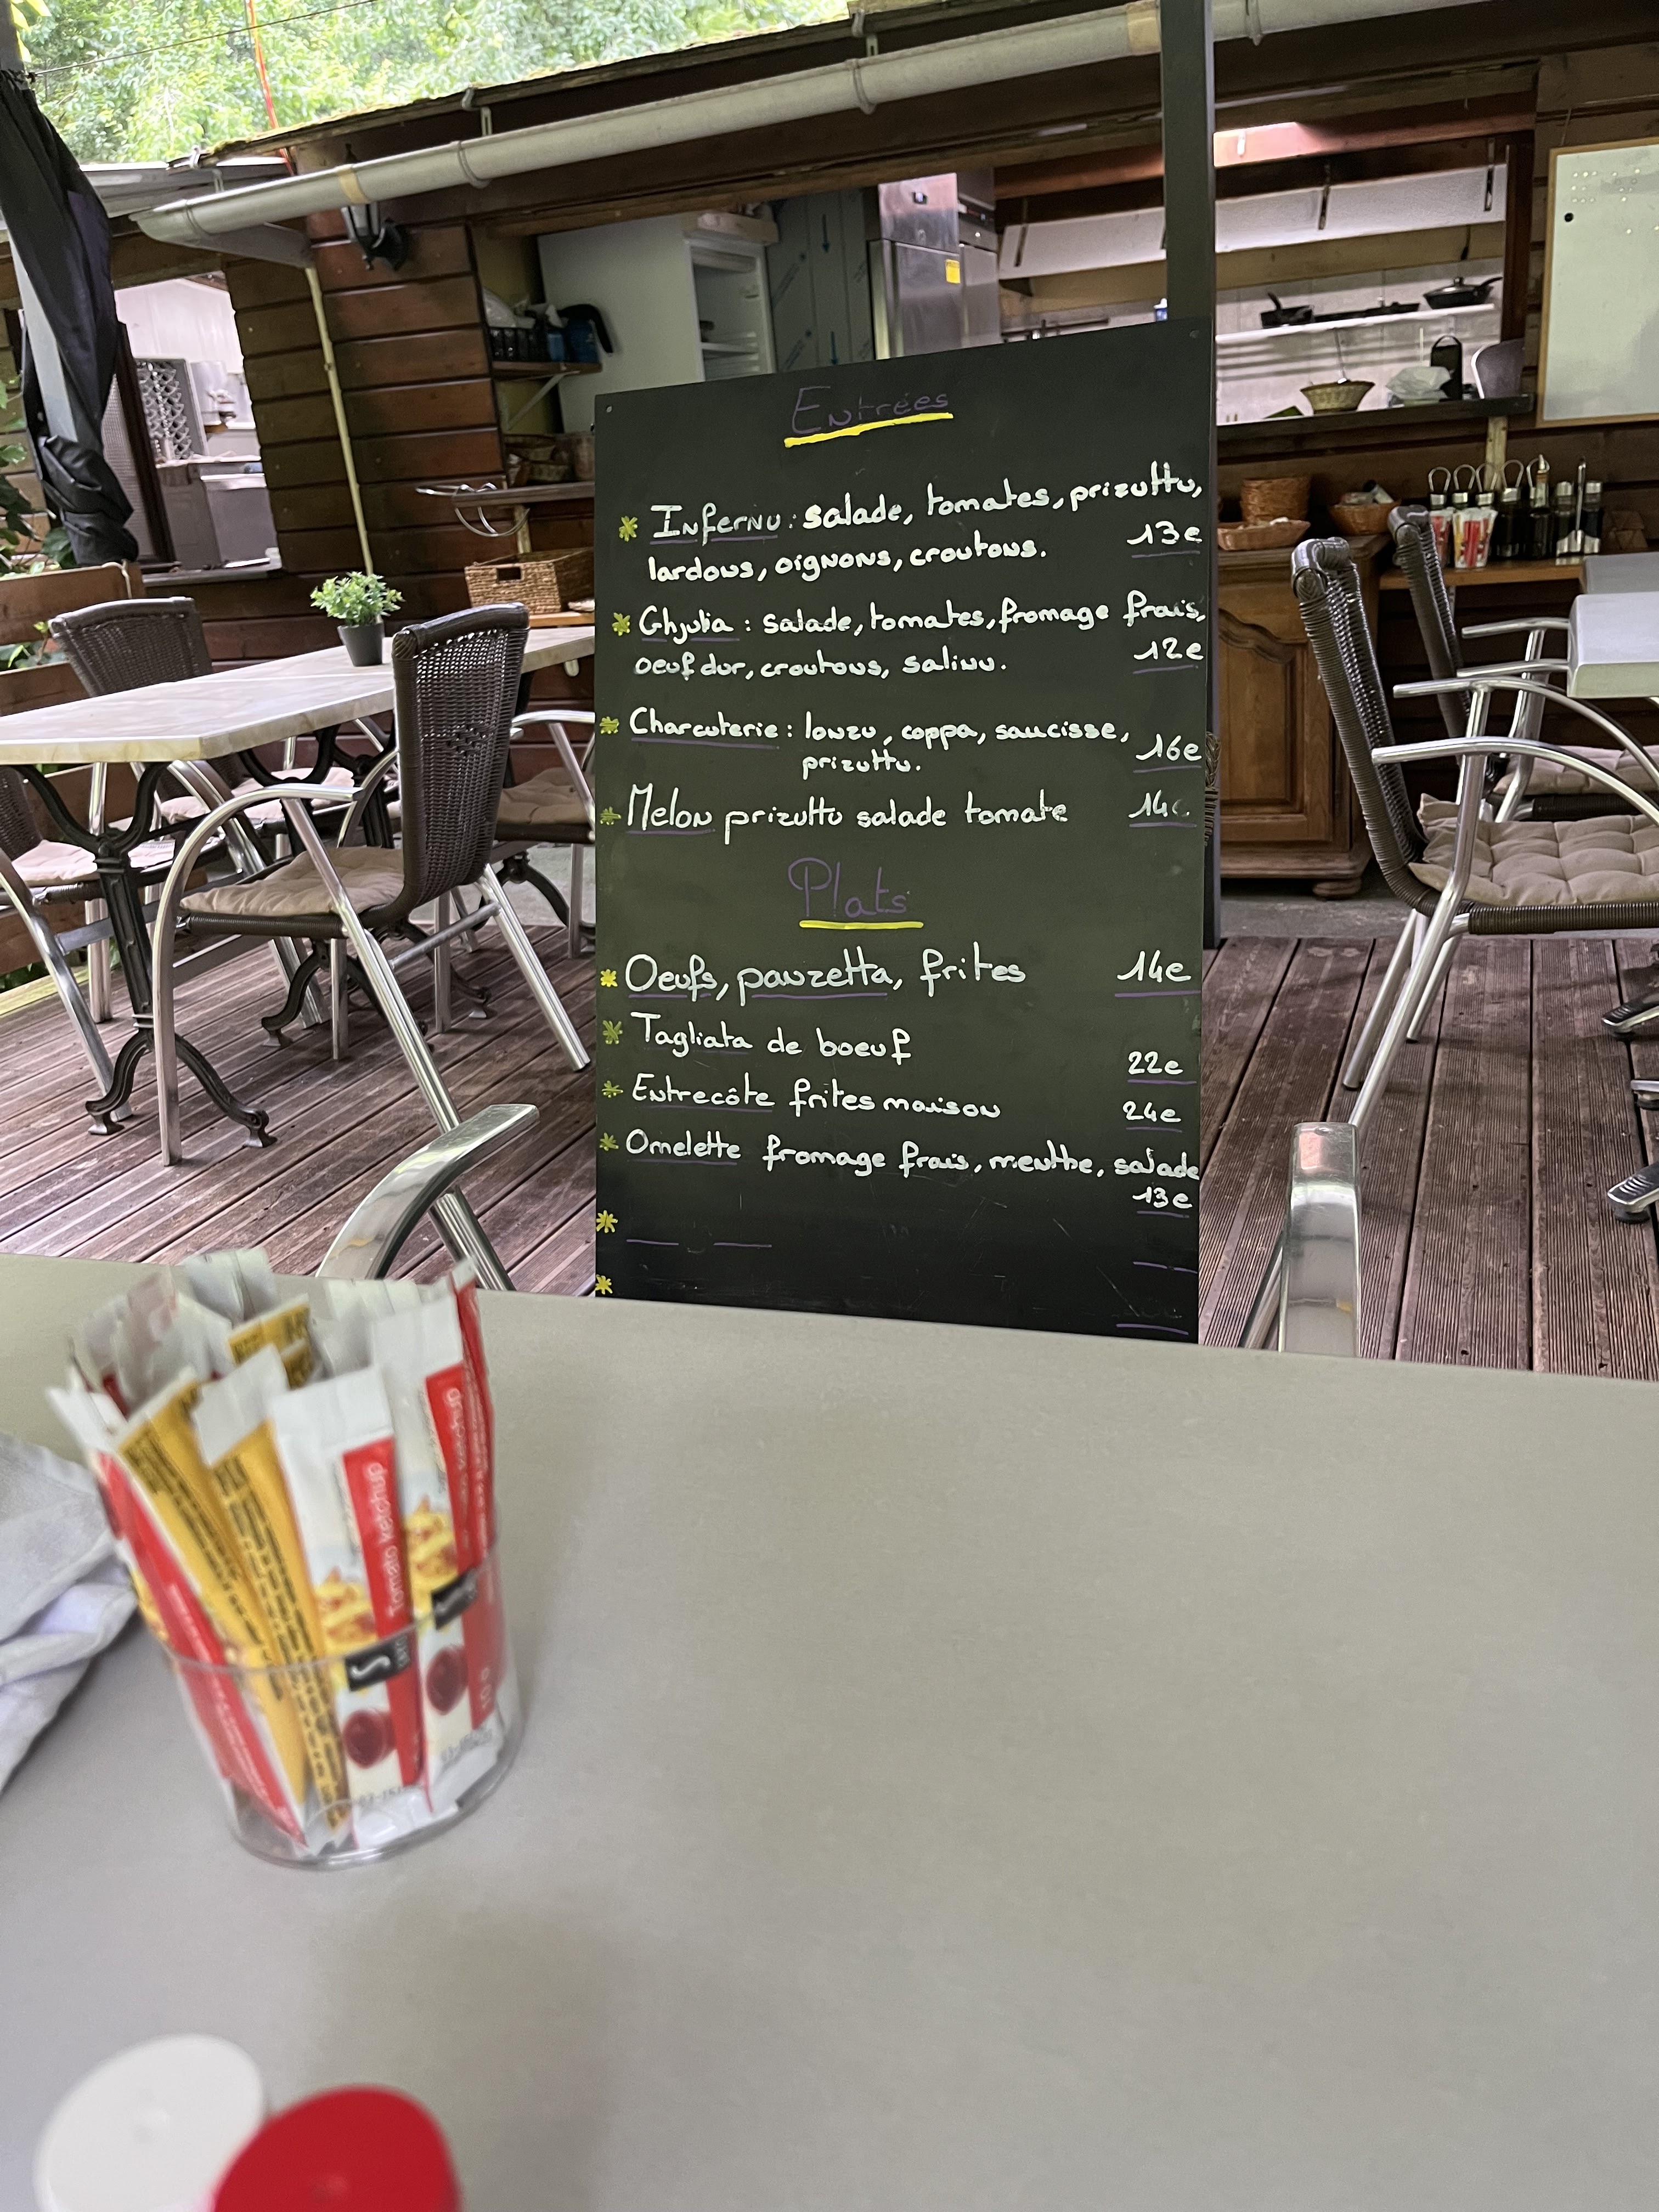 Entrées
* Infernu : salade, tomates, prizuttu,
lardons, oignons, croutons. 13e
* Ghjulia : salade, tomates, fromage frais,
oeuf dur, croutons, salinu. 12e
* Charcuterie : lonzu, coppa, saucisse,
prizuttu. 16e
* Melon prizuttu salade tomate 14e
Plats
* Oeufs, panzetta, frites 14e
* Tagliata de boeuf 22e
* Entrecôte frites maison 24e
* Omelette fromage frais, menthe, salade
13e
*
*
Tomato ketchup